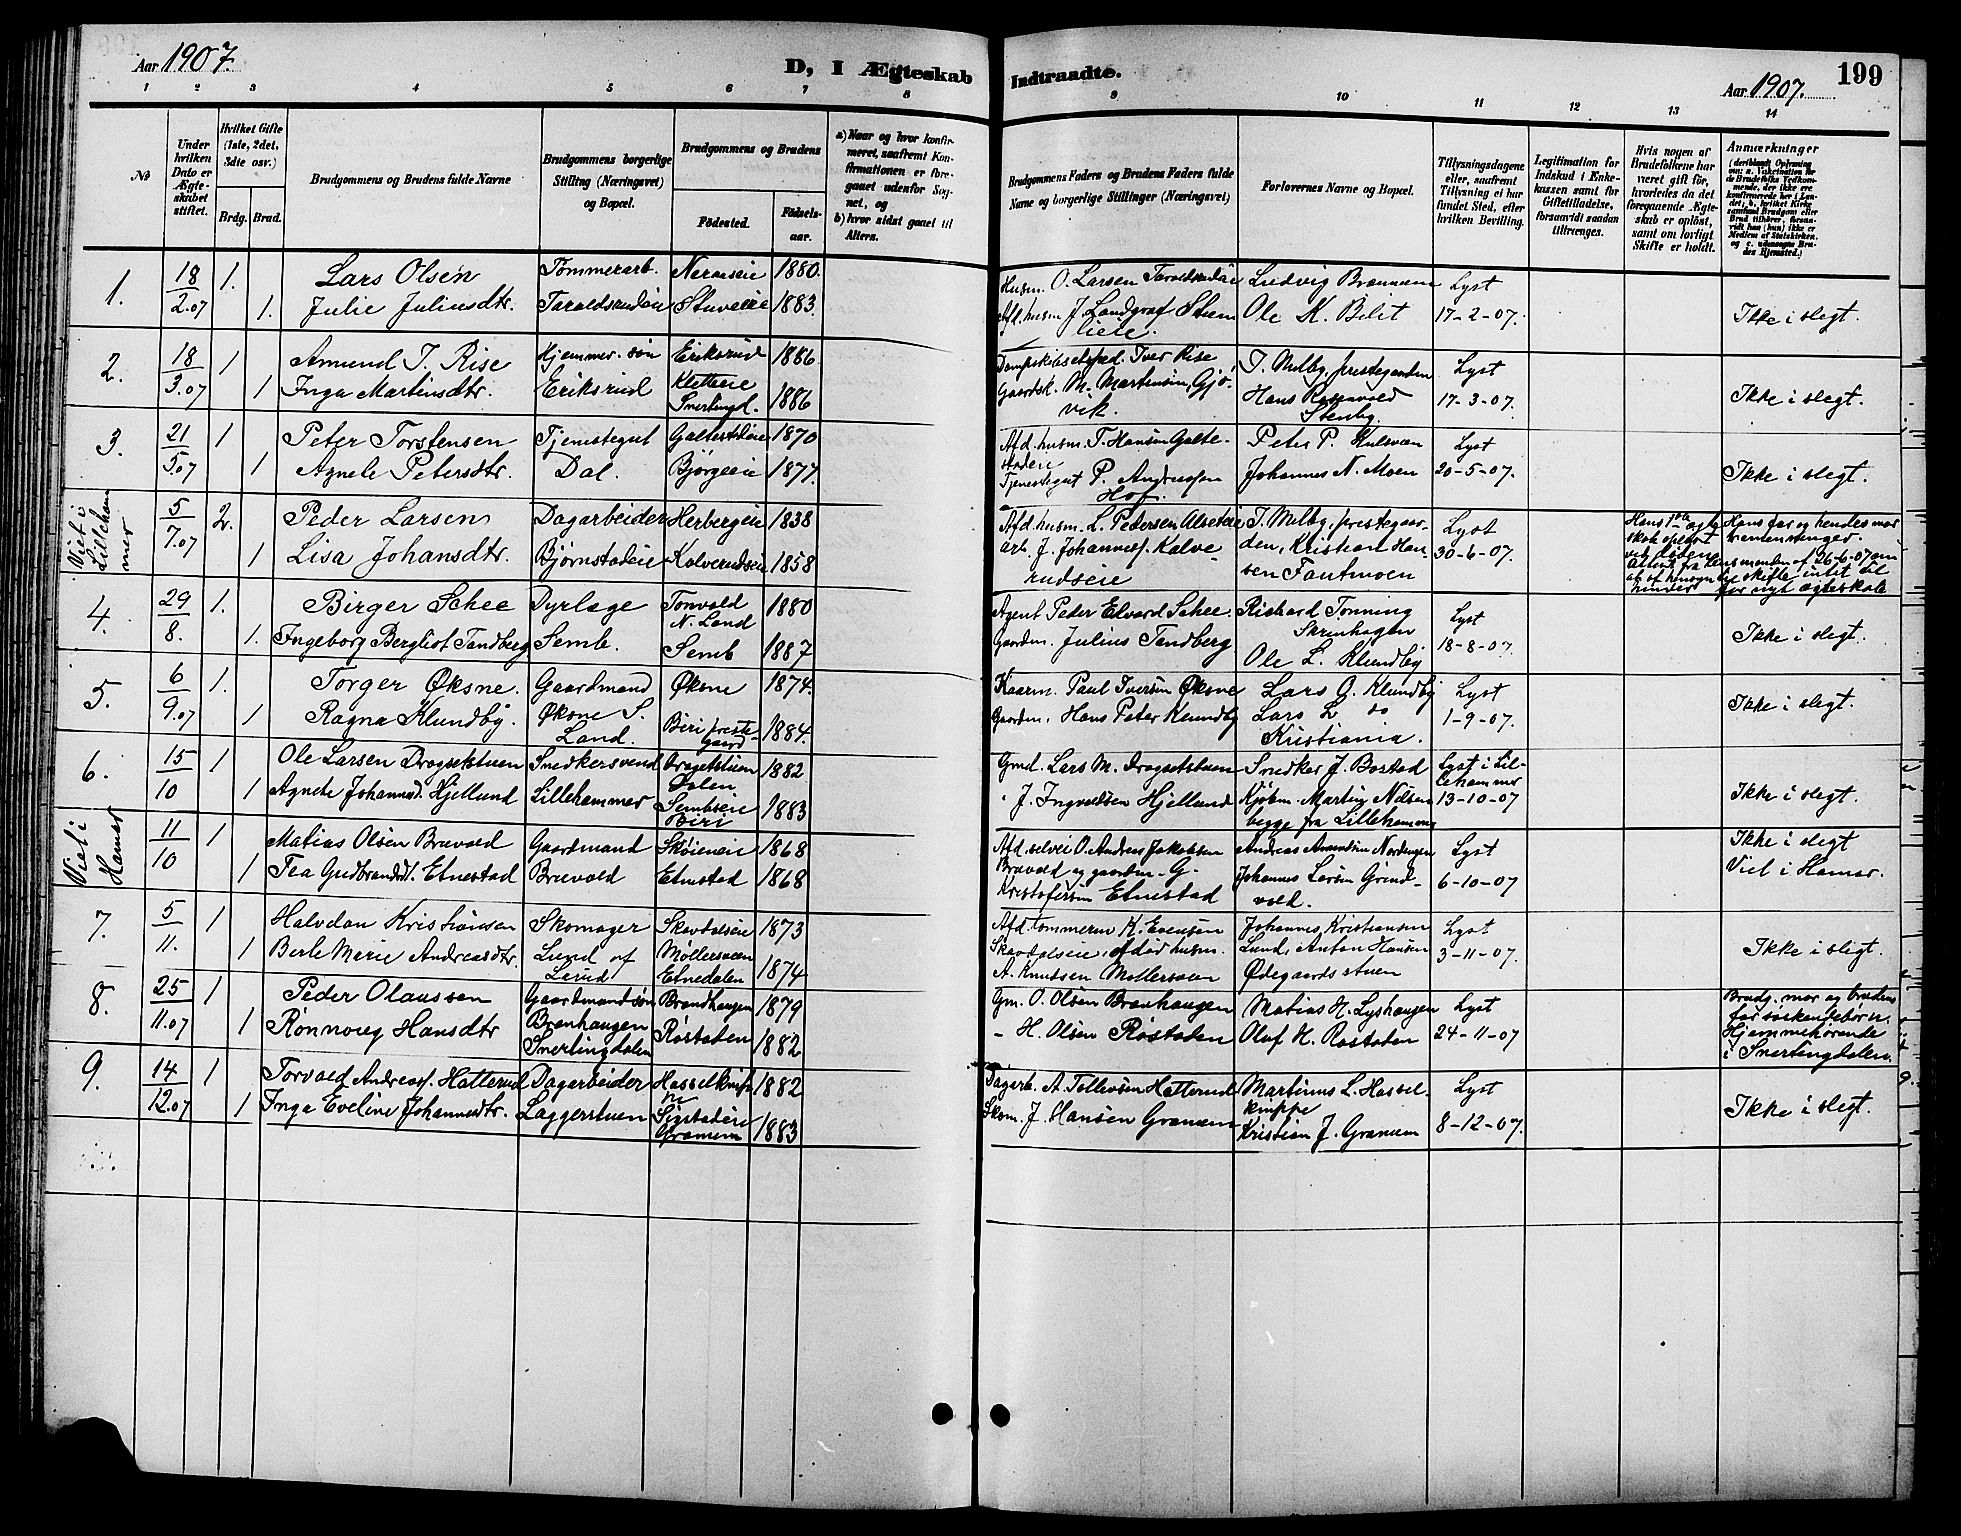 Aar 1907.
D, I Ægteskab Indtraadte.
Aar 1907.
199
1 2 3 4 5 6 7 8 9 10 11 12 13 14
No
Under hvilken Dato er Ægteskabet stiftet.
Hvilket Gifte (1ste, 2det, 3die osv.)
Brdg. Brud.
Brudgommens og Brudens fulde Navne
Brudgommens borgerlige Stilling (Næringsvei) og Bopæl.
Brudgommens og Brudens
Fødested.
Fødselsaar.
a) Naar og hvor konfirmeret, saafremt Konfirmationen er foregaaet udenfor Sognet, og
b) hvor sidst gaaet til Alters.
Brudgommens Faders og Brudens Faders fulde Navne og borgerlige Stillinger (Næringsvei)
Forlovernes Navne og Bopæl.
Tillysningsdagene eller, saafremt Tillysning ei har fundet Sted, efter hvilken Bevilling.
Legitimation for Indskud i Enkekassen samt for Giftetilladelse, forsaavidt saadan tiltrænges.
Hvis nogen af Brudefolkene har været gift før, hvorledes da det foregaaende Ægteskab er opløst, samt om lovligt Skifte er holdt.
Anmærkninger
1. 18/2.07 1. Lars Olsen Tømmerarb. 1880. Husm. O. Larsen Ludvig Lyst
1. Julie Juliusdtr. Stuveeie 1883. Afd. husm. J. Landgraf Ole K. Bilit 17-2-07. Ikke i slegt.
2. 18/3.07 1 Amund I. Rise Hjemmev. søn Eriksrud 1886 Iver Rise I. Melby, prestegaarden Lyst
1 Inga Martinsdtr. Eriksrud Kletteeie Snertingd. 1886 Gaardsk. M. Martinsen, Gjøvik. Hans Rosenvold Stenby 17-3-07. Ikke i slegt.
3. 21/5.07 1 Peter Torstensen Tjenestegut 1870 Afd. husm. T. Hansen Peter P. Lyst
1 Agnete Petersdtr. Dal. Bjørgeeie 1877. Tjenestegut P. Andreassen Hof. Johannes N. Moen 20-5-07. Ikke i slegt.
Viet i Lillehammer 5/7.07 2. Peder Larsen Dagarbeider Herbergeie 1838 Afd. husm. L. Pedersen I. Melby, prestegaarden, Kristian Hansen Fautmoen Lyst
1 Lisa Johansdtr. Bjørnstadeie Kalverudseie 1858 arb. J. Johannes. Kalverudseie 30-6-07. Hans far og hendes mor
4. 29/8. 1. Birger Schee Dyrlæge Tonvold N. Land 1880 Agent Peder Edvard Schee Richard Tønning Skrenhagen Lyst
1. Ingeborg Bergliot Tandberg Semb. Semb 1887 Gaardm. Julius Tandberg Ole L. Klundby 18-8-07. Ikke i slegt.
5. 6/9.07 1. Torger Øksne. Gaardmand Øksne 1874. Kaarm. Paul Iversen Øksne Lars O. Klundby Lyst
1 Ragna Klundby. Øksne S. Land. Biri prestegaard 1884. Gaardm. Hans Peter Klundby Lars L. do Kristiania. 1-9-07. Ikke i slegt.
6. 15/10 1 Ole Larsen Dragsetstuen Snedkersvend Dragetstuen Dalen 1882 Gmd. Lars M. Dragsetstuen Snedker J. Bostad Lyst i Lillehammer
1 Agnete Johannesd. Hjellund Lillehammer Sembseie Biri 1883 J. Ingvaldsen Hjellund Kjøbm. Martin Nilsen begge fra Lillehammer 13-10-07 Ikke i slegt.
Viet i Hamar 11/10 1 Matias Olsen Bruvold Gaardmand Skøieneie 1868 Afd. selvei O. Andreas Jakobsen Bruvold og gaardm. G. Kristofersen Etnestad Andreas Amundsen Nordengen Lyst Ikke i slegt
1 Tea Gudbrandsd. Etnestad Bruvold Etnestad 1868 Johannes Larsen Grindvold. 6-10-07 Viet i Hamar.
7. 5/11. 1 Halvdan Kristiansen Skomager Skavdalseie 1873 Afd. tømmerm K. Evensen Johannes Kristiansen Lyst
1 Berte Marie Andreasdtr. Lund af Lerud Møllersveen Etnedalen 1874 Skavdalseie, afdød husm. A. Knudsen Møllersveen Lund, Anton Hansen Ødegaardsstuen 3-11-07. Ikke i slegt.
8. 25/11.07 1 Peder Olaussen Gaardmandsøn Brandhaugen 1879 Gm. O. Olsen Branhaugen Matias H. Lyshaugen Lyst
1 Rønnoug Hansdtr Branhaugen Snertingdalen Røstaden 1882 - H. Olsen Røstaden Olaf H. Røstaden 24-11-07 Brudg. mor og brudens far søskendebørn. Hjemmehørende i Snertingdalen.
9. 14/12.07 1 Torvald Andreas. Hatterud Dagarbeider 1882 Dagarb. A. Tollevsen Hatterud Martinus L. Hasselknippe Lyst
1 Inga Eveline Johannesdtr. Laggerstuen Sigstadeie Granum 1883 Skom. J. Hansen Granum Kristian J. Granum 8-12-07. Ikke i slegt.